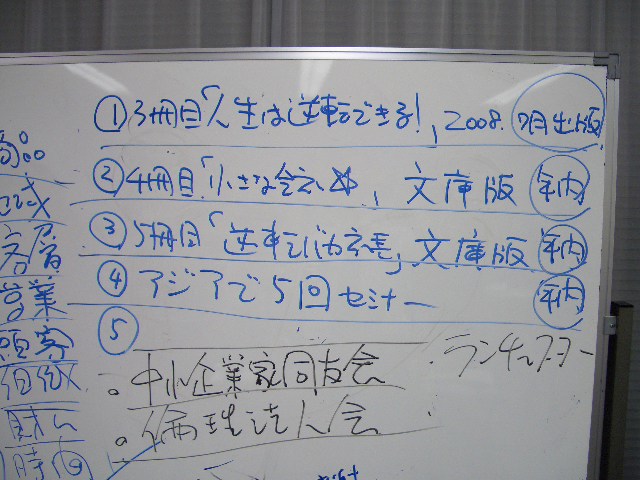 ①3冊目「人生は逆転できる!」, 2008. 7月出版
②4冊目「小さな会社☆, 文庫版 年内
③5冊目「逆転バカ社長」文庫版 年内
④アジアで5回セミナー 年内
⑤
・ランチェスター
。中小企業家同友会
。倫理法人会
商品
地域
客層
営業
顧客
組織
財ム
時間